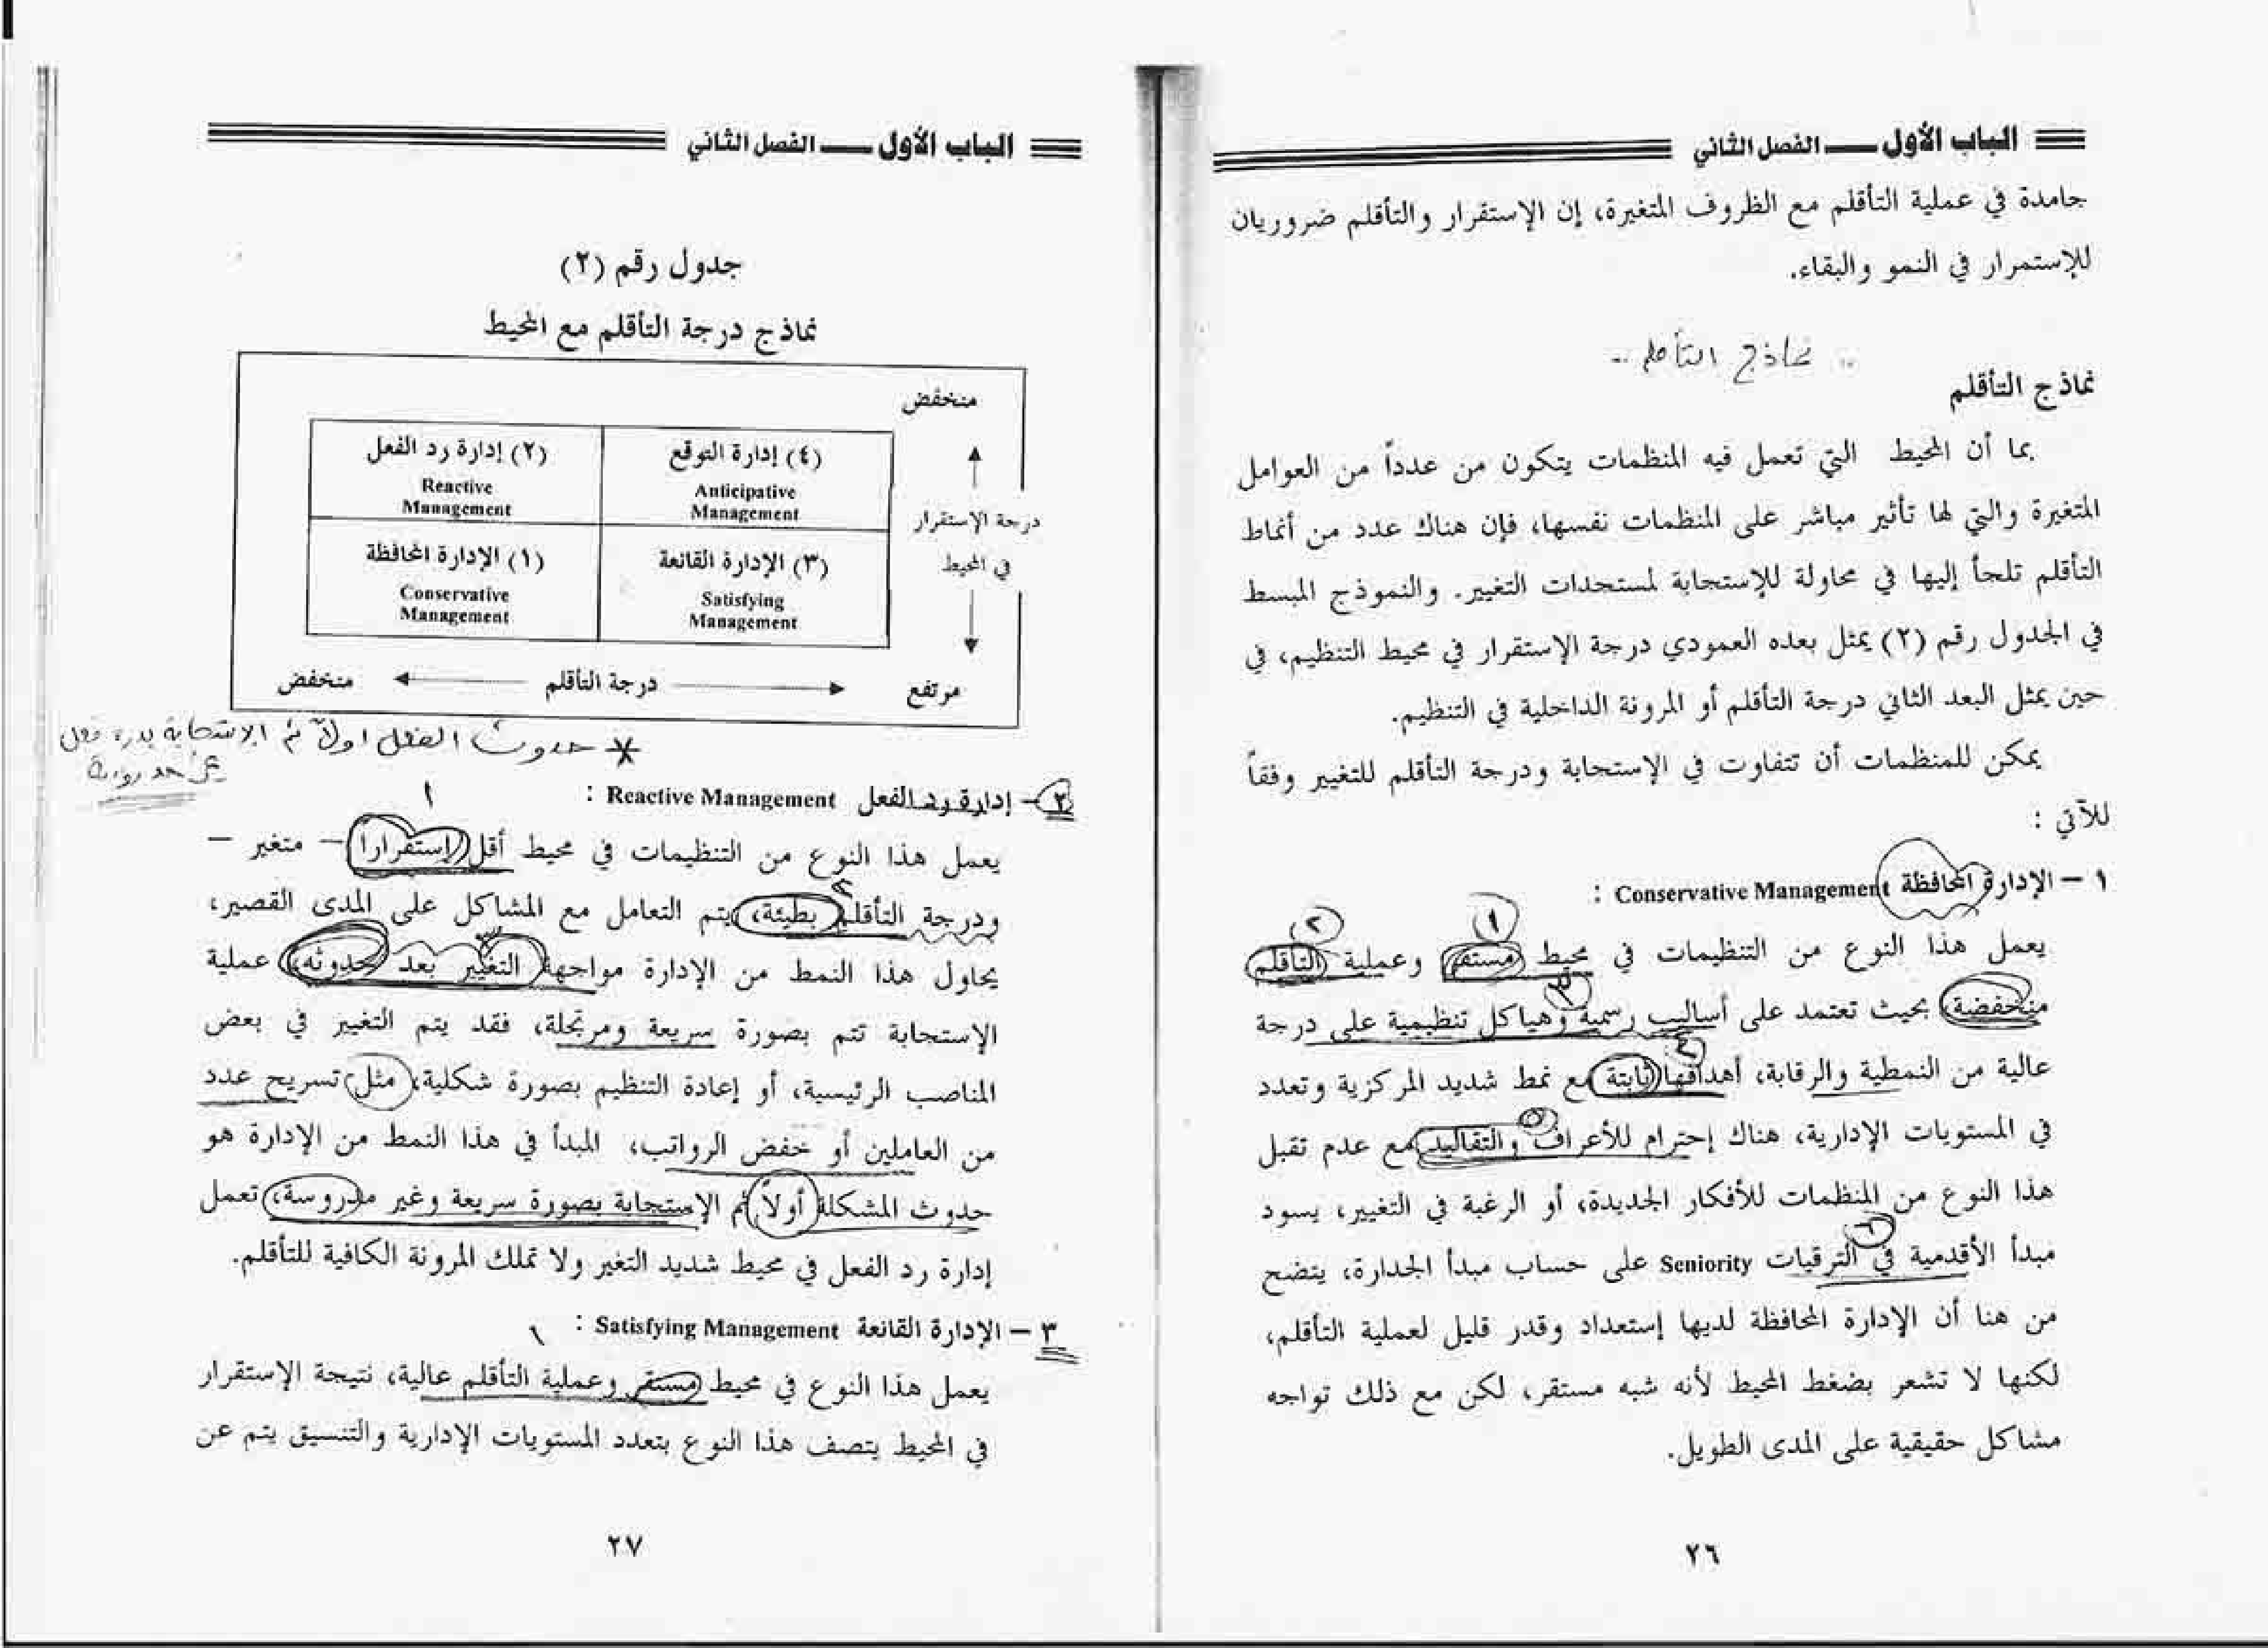 الباب الأول — الفصل الثاني
جامدة في عملية التأقلم مع الظروف المتغيرة، إن الإستقرار والتأقلم ضروريان
للإستمرار في النمو والبقاء.
نماذج التأقلم
نماذج التأقلم
بما أن المحيط التي تعمل فيه المنظمات يتكون من عدداً من العوامل
المتغيرة والتي لها تأثير مباشر على المنظمات نفسها، فإن هناك عدد من أنماط
التأقلم تلجأ إليها في محاولة للإستجابة لمستجدات التغيير. والنموذج المبسط
في الجدول رقم (٢) يمثل بعده العمودي درجة الإستقرار في محيط التنظيم، في
حين يمثل البعد الثاني درجة التأقلم أو المرونة الداخلية في التنظيم.
يمكن للمنظمات أن تتفاوت في الإستجابة ودرجة التأقلم للتغيير وفقاً
للآتي :
١ – الإدارة المحافظة Conservative Management :
يعمل هذا النوع من التنظيمات في محيط مستقر وعملية التأقلم
منخفضة بحيث تعتمد على أساليب رسمية وهياكل تنظيمية على درجة
عالية من النمطية والرقابة، أهدافها ثابتة مع نمط شديد المركزية وتعدد
في المستويات الإدارية، هناك إحترام للأعراف والتقاليد مع عدم تقبل
هذا النوع من المنظمات للأفكار الجديدة، أو الرغبة في التغيير، يسود
مبدأ الأقدمية في الترقيات Seniority على حساب مبدأ الجدارة، يتضح
من هنا أن الإدارة المحافظة لديها إستعداد وقدر قليل لعملية التأقلم،
لكنها لا تشعر بضغط المحيط لأنه شبه مستقر، لكن مع ذلك تواجه
مشاكل حقيقية على المدى الطويل.
٢٦
الباب الأول — الفصل الثاني
جدول رقم (٢)
نماذج درجة التأقلم مع المحيط
منخفض
(٤) إدارة التوقع
Anticipative
Management
(٢) إدارة رد الفعل
Reactive
Management
درجة الإستقرار
في المحيط
(٣) الإدارة القانعة
Satisfying
Management
(١) الإدارة المحافظة
Conservative
Management
مرتفع درجة التأقلم منخفض
* حدوث الفعل اولاً ثم الاستجابة بدرة فعل
٢ – إدارة رد الفعل Reactive Management :
يعمل هذا النوع من التنظيمات في محيط أقل إستقراراً – متغير –
ودرجة التأقلم بطيئة، يتم التعامل مع المشاكل على المدى القصير،
يحاول هذا النمط من الإدارة مواجهة التغيير بعد حدوثه، عملية
الإستجابة تتم بصورة سريعة ومرتجلة، فقد يتم التغيير في بعض
المناصب الرئيسية، أو إعادة التنظيم بصورة شكلية، مثل تسريح عدد
من العاملين أو خفض الرواتب، المبدأ في هذا النمط من الإدارة هو
حدوث المشكلة أولاً ثم الإستجابة بصورة سريعة وغير مدروسة، تعمل
إدارة رد الفعل في محيط شديد التغير ولا تملك المرونة الكافية للتأقلم.
٣ – الإدارة القانعة Satisfying Management :
يعمل هذا النوع في محيط مستقر وعملية التأقلم عالية، نتيجة الإستقرار
في المحيط يتصف هذا النوع بتعدد المستويات الإدارية والتنسيق يتم عن
٢٧